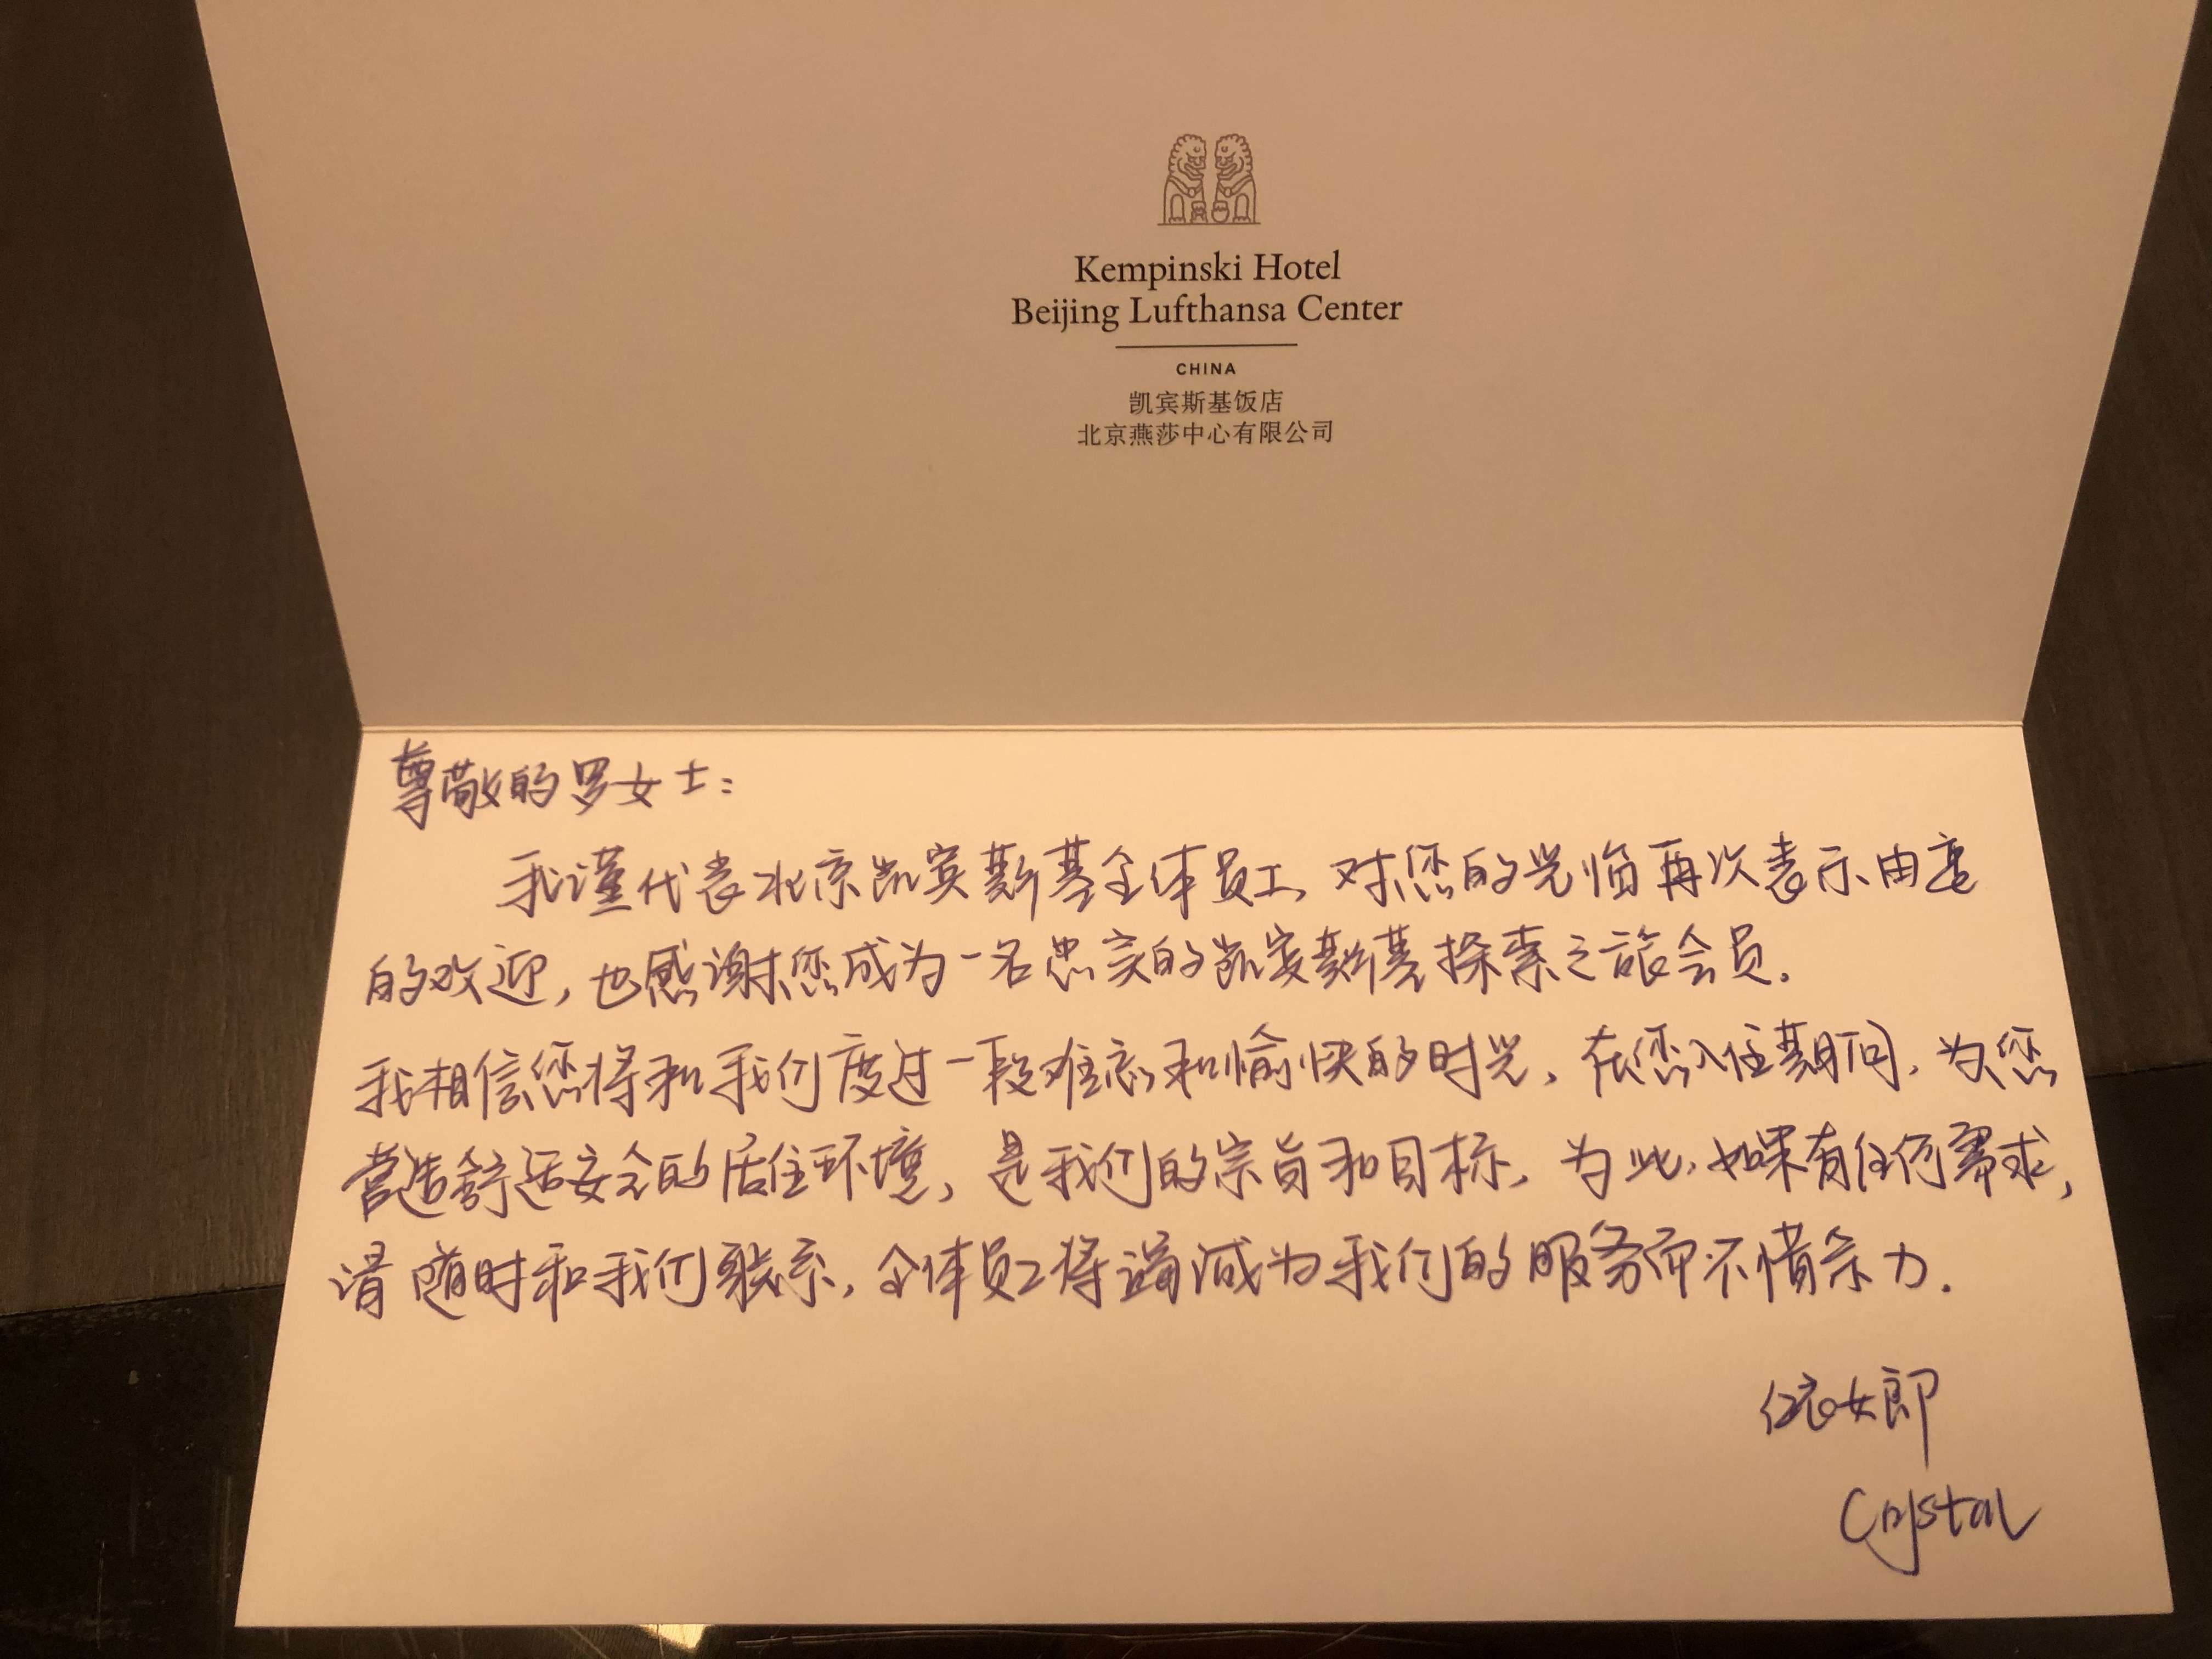 Kempinski Hotel
Beijing Lufthansa Center
CHINA
凯宾斯基饭店
北京燕莎中心有限公司
尊敬的罗女士：
我谨代表北京凯宾斯基全体员工，对您的光临再次表示由衷
的欢迎，也感谢您成为一名忠实的凯宾斯基探索之旅会员。
我相信您将和我们度过一段难忘和愉快的时光，在您入住期间，为您
营造舒适安全的居住环境，是我们的宗旨和目标，为此，如果有任何需求，
请随时和我们联系，全体员工将竭诚为我们的服务而不惜余力.
依女郎
Crystal